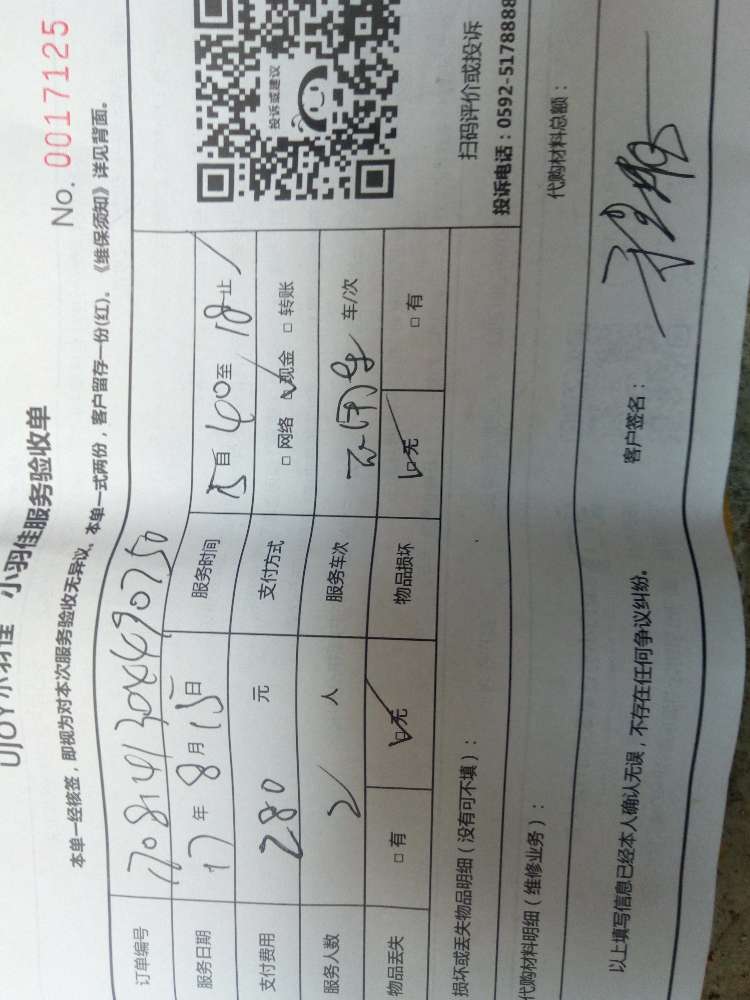 UJOY小羽佳 小羽佳服务验收单
No. 0017125
本单一经核签，即视为对本次服务验收无异议、本单一式两份，客户留存一份(红)。《维保须知》详见背面。
订单编号
服务日期 17年8月15日 服务时间 15自40至18止
支付费用 280 元 支付方式 □网络 ☑现金 □转账
服务人数 2 人 服务车次 车/次
物品丢失 □有 ☑无 物品损坏 ☑无 □有
投诉或建议
扫码评价或投诉
投诉电话：0592-5178888
损坏或丢失物品明细（没有可不填）：
代购材料明细（维修业务）：
代购材料总额：
以上填写信息已经本人确认无误，不存在任何争议纠纷。
客户签名：